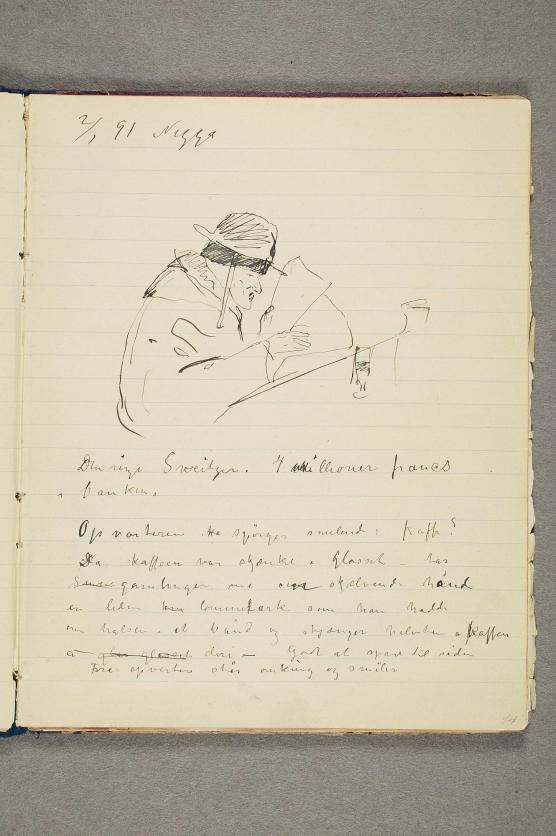 2/1 91 Nizza
Den rige Sweitzer. 4 millioner francs
i banken.
Opvarteren spörger smilende: Kaffe?
Da kaffeen var skjænket i Glasset tar
med skjælvende hånd
en liden lommelærke som han hadde
om halsen i et bånd og skjænger halvten af kaffen
deri – Godt at spare til siden
opvarter står omkring og smiler
14